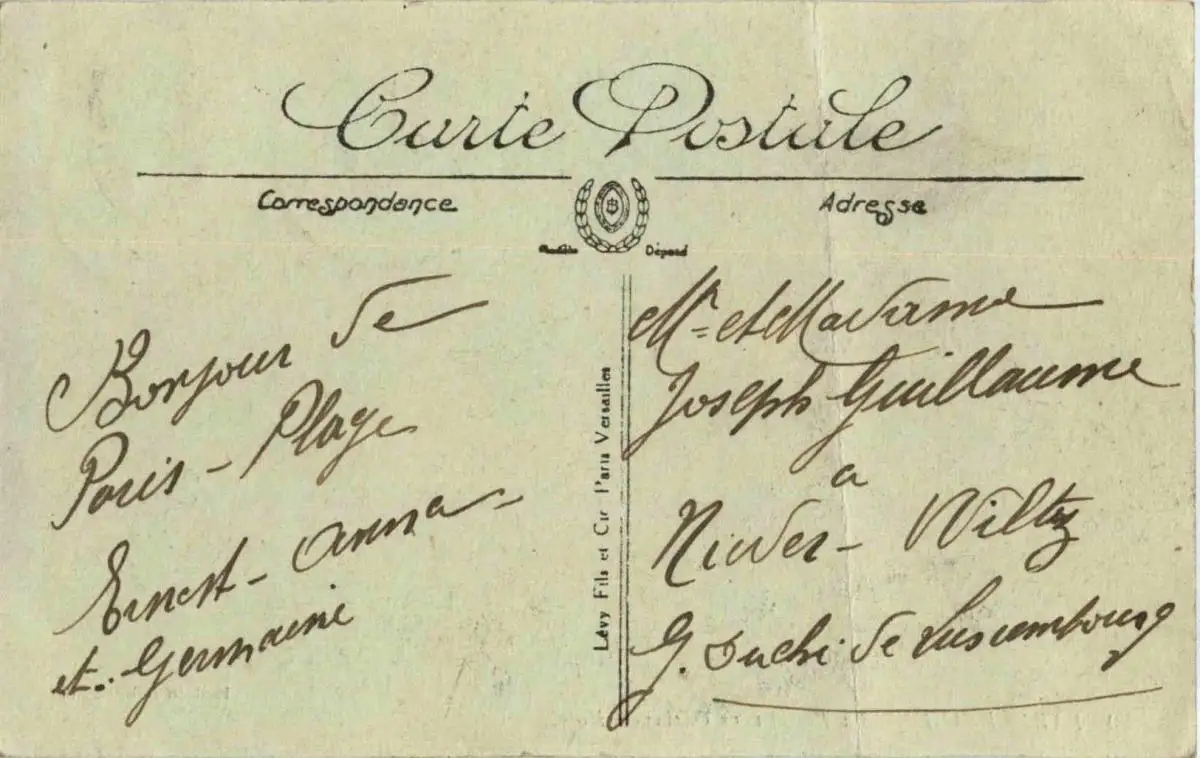 Carte Postale
Correspondance
Adresse
Modèle Déposé
Bonjour de
Paris-Plage
Ernest-anna-
et. Germaine
Lévy Fils et Cie Paris Versailles
Mr et Madame
Joseph Guillaume
a
Nieder-Wiltz
G. Duché de Luxembourg